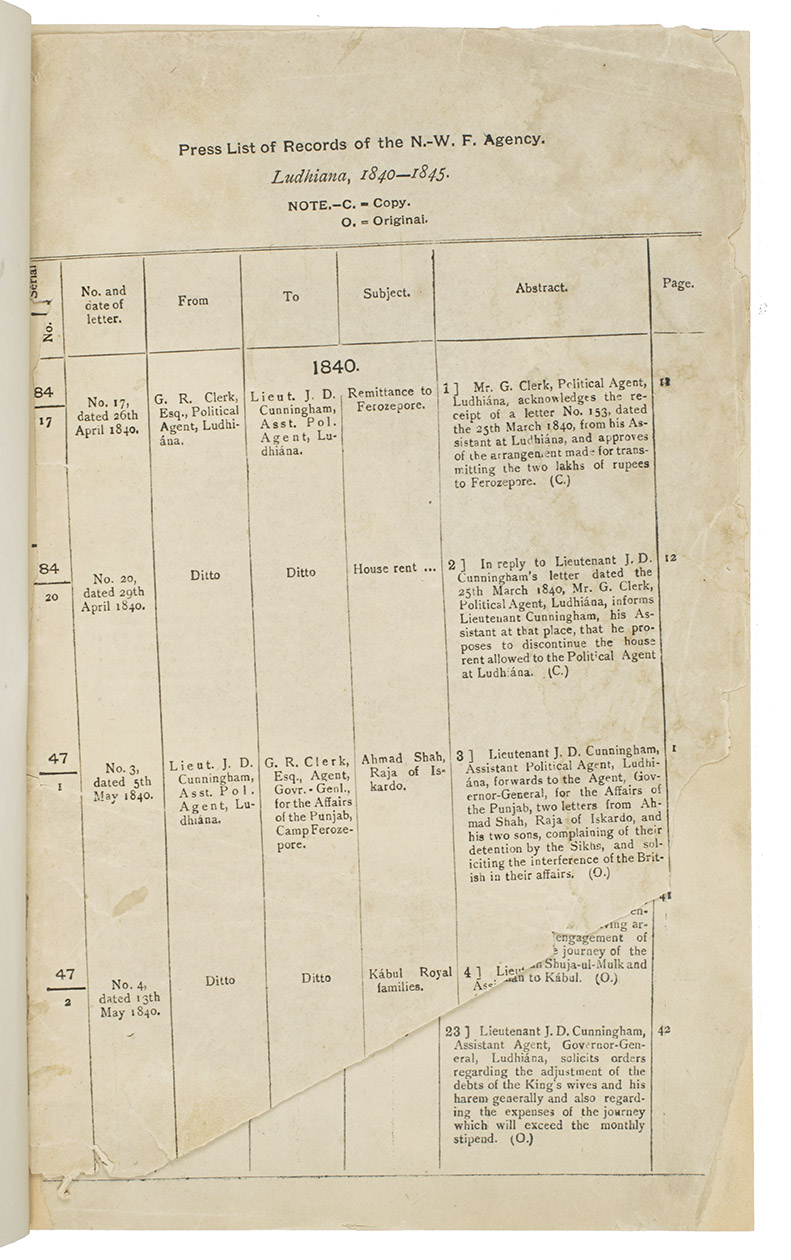 Press List of Records of the N.-W. F. Agency.
Ludhiana, 1840—1845.
NOTE.—C. = Copy.
O. = Original.
Serial No.
No. and
date of
letter.
From
To
Subject.
Abstract.
Page.
1840.
84
17
No. 17,
dated 26th
April 1840.
G. R. Clerk,
Esq., Political
Agent, Ludhi-
ána.
Lieut. J. D.
Cunningham,
Asst. Pol.
Agent, Lu-
dhiána.
Remittance to
Ferozepore.
1] Mr. G. Clerk, Political Agent,
Ludhiána, acknowledges the re-
ceipt of a letter No. 153, dated
the 25th March 1840, from his As-
sistant at Ludhiána, and approves
of the arrangement made for trans-
mitting the two lakhs of rupees
to Ferozepore. (C.)
84
20
No. 20,
dated 29th
April 1840.
Ditto
Ditto
House rent ...
2] In reply to Lieutenant J. D.
Cunningham's letter dated the
25th March 1840, Mr. G. Clerk,
Political Agent, Ludhiána, informs
Lieutenant Cunningham, his As-
sistant at that place, that he pro-
poses to discontinue the house
rent allowed to the Political Agent
at Ludhiána. (C.)
12
47
1
No. 3,
dated 5th
May 1840.
Lieut. J. D.
Cunningham,
Asst. Pol.
Agent, Lu-
dhiána.
G. R. Clerk,
Esq., Agent,
Govr.-Genl.,
for the Affairs
of the Punjab,
Camp Feroze-
pore.
Ahmad Shah,
Raja of Is-
kardo.
3] Lieutenant J. D. Cunningham,
Assistant Political Agent, Ludhi-
ána, forwards to the Agent, Gov-
ernor-General, for the Affairs of
the Punjab, two letters from Ah-
mad Shah, Raja of Iskardo, and
his two sons, complaining of their
detention by the Sikhs, and sol-
iciting the interference of the Brit-
ish in their affairs. (O.)
1
47
2
No. 4,
dated 13th
May 1840.
Ditto
Ditto
Kábul Royal
families.
4]
41
en-
ving ar-
engagement of
journey of the
Shuja-ul-Mulk and
to Kábul. (O.)
23] Lieutenant J. D. Cunningham,
Assistant Agent, Governor-Gen-
eral, Ludhiána, solicits orders
regarding the adjustment of the
debts of the King's wives and his
harem generally and also regard-
ing the expenses of the journey
which will exceed the monthly
stipend. (O.)
42